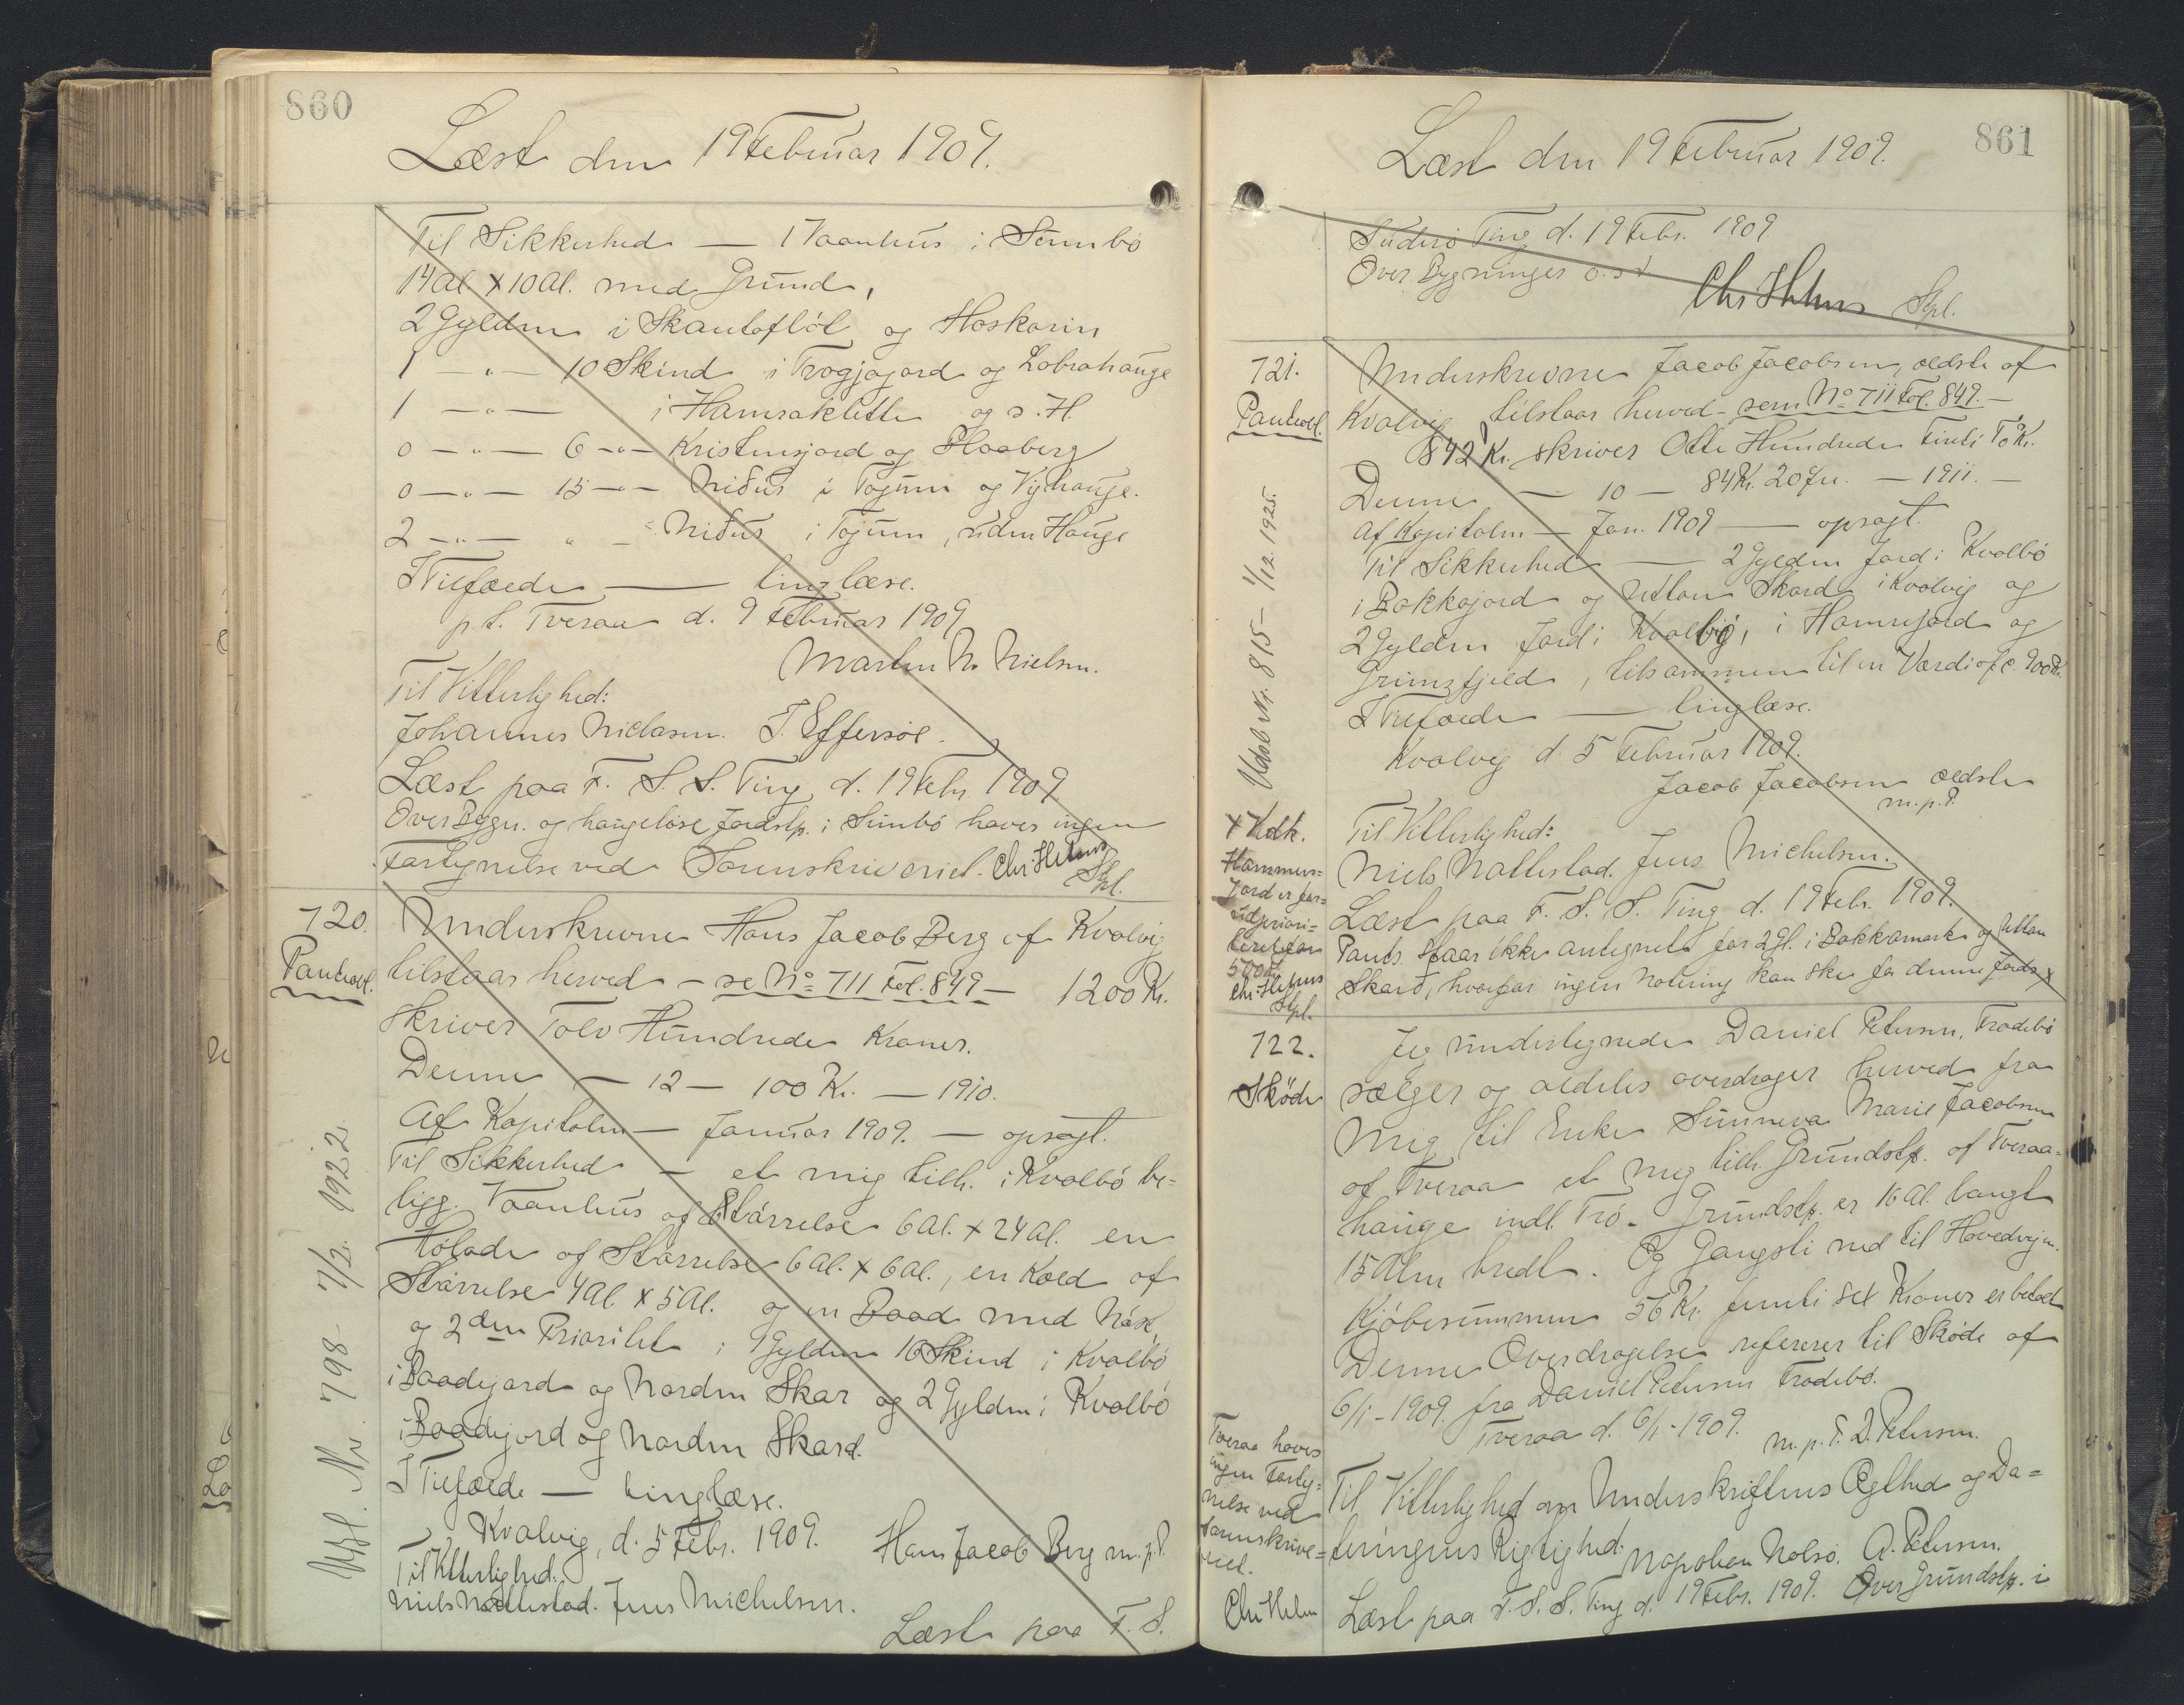 860
Læst den 19 Februar 1909.
Til Sikkerhed — 1 Vaanhus i Sumbö
14 Al. x 10 Al. med Grund,
2 Gylden i Skantofløt og Hoskarin
1 —"— 10 Skind i Trogjagard og Lobrahauge
1 —"— i Hamraklette og s. H.
0 —"— 6 —"— Kristensjord og Flaaberg
0 —"— 15 —"— Niðus i Togum og Vijhauge.
2 —"— " — Niðus i Togum, uden Hauge
I Tilfælde — tinglæse.
p.t. Tveraa d. 9 Februar 1909
Martin N. Nielsen.
Til Vitterlighed:
Johannes Niclasen. J. Effersöe.
Læst paa F. S. S. Ting d. 19 Febr. 1909
Over Bygn. og haugelöse Jordstp. i Sumbö haves ingen
Fortegnelse ved Sorenskriveriet. Chr Helms
Spl.
720.
Panteobl.
Underskrevne Hans Jacob Berg af Kvalvig
tilstaar herved – se No 711 Fol. 849 – 1200 Kr.
skriver Tolv Hundrede Kroner.
Denne — 12 — 100 Kr. — 1910.
Af Kapitalen — Januar 1909. — opsagt.
Til Sikkerhed — et mig tilh. i Kvalbö be=
ligg. Vaanhus af Störrelse 6 Al. x 24 Al. en
Hölade af Störrelse 6 Al. x 6 Al., en Kæld af
Störrelse 4 Al. x 5 Al. og en Baad med Nöst,
og 2den Prioritet i 1 Gylden 16 Skind i Kvalbö
i Baadejord og Norden Skar og 2 Gylden i Kvalbö
i Baadejord og Norden Skard.
I Tilfælde — tinglæse.
Kvalvig, d. 5 Febr. 1909.
Hans Jacob Berg m. p. P.
Til Vitterlighed:
Niels Nattestad. Jens Michelsen.
Læst paa F. S.
Nr. 798 – 7/2. 1922
861
Læst den 19 Februar 1909.
Suderö Ting d. 19 Febr. 1909
Over Bygninger o.s.v.
Chr Helms Spl.
721.
Panteobl.
Underskrevne Jacob Jacobsen, ældste af
Kvalvig tilstaar herved – sem No 711 Fol. 849. –
842 Kr. skriver Otte Hundrede Firti To Kr.
Denne — 10 — 84 Kr. 20 Øre. — 1911. —
Af Kapitalen — Jan. 1909 — opsagt.
Til Sikkerhed — 2 Gylden Jord i Kvalbö
i Bakkajord og Uttan Skard i Kvalvig og
2 Gylden Jord i Kvalbö, i Hamrejord og
Grimsfjeld, tilsammen til en Værdi af c. 900 Kr.
I Tilfælde — tinglæse.
Kvalvig d. 5 Februar 1909.
Jacob Jacobsen ældste
m. p. P.
Til Vitterlighed:
Niels Nattestad. Jens Michelsen.
Læst paa F. S. S. Ting d. 19 Febr. 1909.
Pants. staar ikke antegnet for 2 Gl. i Bakkamark og Uttan
Skard, hvorfor ingen Notering kan ske for denne Jords x
Udsl. Nr. 815 – 1/12 1925.
x Kdk.
Hammers=
Jord er for=
udpriori=
teret for
500 Kr.
Chr. Helms
Spl.
722.
Sköde
Jeg undertegnede Daniel Petersen, Frodebö
sælger og aldeles overdrager herved fra
mig til Enke Sunneva Marie Jacobsen
af Tveraa et mig tilh. Grundstk. af Tveraa-
hauge indl. Trö. Grundstk. er 16 Al. langt
15 Alen bredt. Og Gangsti ned til Hovedvejen.
Kjöbesummen 56 Kr. femti sex Kroner er betalt
Denne Overdragelse refererer til Sköde af
6/1-1909. fra Daniel Petersen Frodebö.
Tveraa d. 6/1-1909. m. p. P. D. Petersen.
Til Vitterlighed om Underskriftens Ægthed og Da=
teringens Rigtighed: Napolean Nolsö. A. Petersen.
Læst paa F. S. S. Ting d. 19 Febr. 1909. Over Grundstk. i
Tveraa haves
ingen Forteg=
nelse ved
Sorenskrive=
riet.
Chr Helms